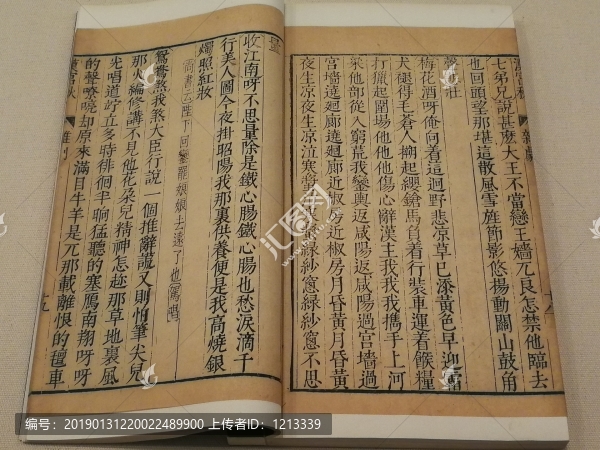 七弟兄說甚麽大王不當戀王嬙兀良怎禁他臨去
也回頭望那堪這散風雪旌節影悠揚動關山鼓角
聲悲壯
梅花酒呀俺向着這迥野悲凉草已添黃色早迎霜
犬褪得毛蒼人搠起纓鎗馬負着行裝車運着餱糧
打獵起圍場他他他傷心辭漢主我我我攜手上河
梁他部從入窮荒我鑾輿返咸陽返咸陽過宮墻過
宮墻遶迴廊遶迴廊近椒房近椒房月昏黃月昏黃
夜生凉夜生凉泣寒螿泣寒螿綠紗窻綠紗窻不思
收江南呀不思量除是鐵心腸鐵心腸也愁淚滴千
行美人圖今夜掛昭陽我那裏供養便是我高燒銀
燭照紅妝
尚書云陛下回鑾罷娘娘去遠了也駕唱
鴛鴦煞我煞大臣行說一個推辭謊又則怕筆尖兒
那火編修講不見他花朵兒精神怎趂那草地裏風
光唱道竚立多時徘徊半晌猛聽的塞鴈南翔呀呀
的聲嘹喨却原來滿目牛羊是兀那載離恨的氊車
漢宮秋
雜劇
汇图网
编号:20190131220022489900 上传者ID:1213339